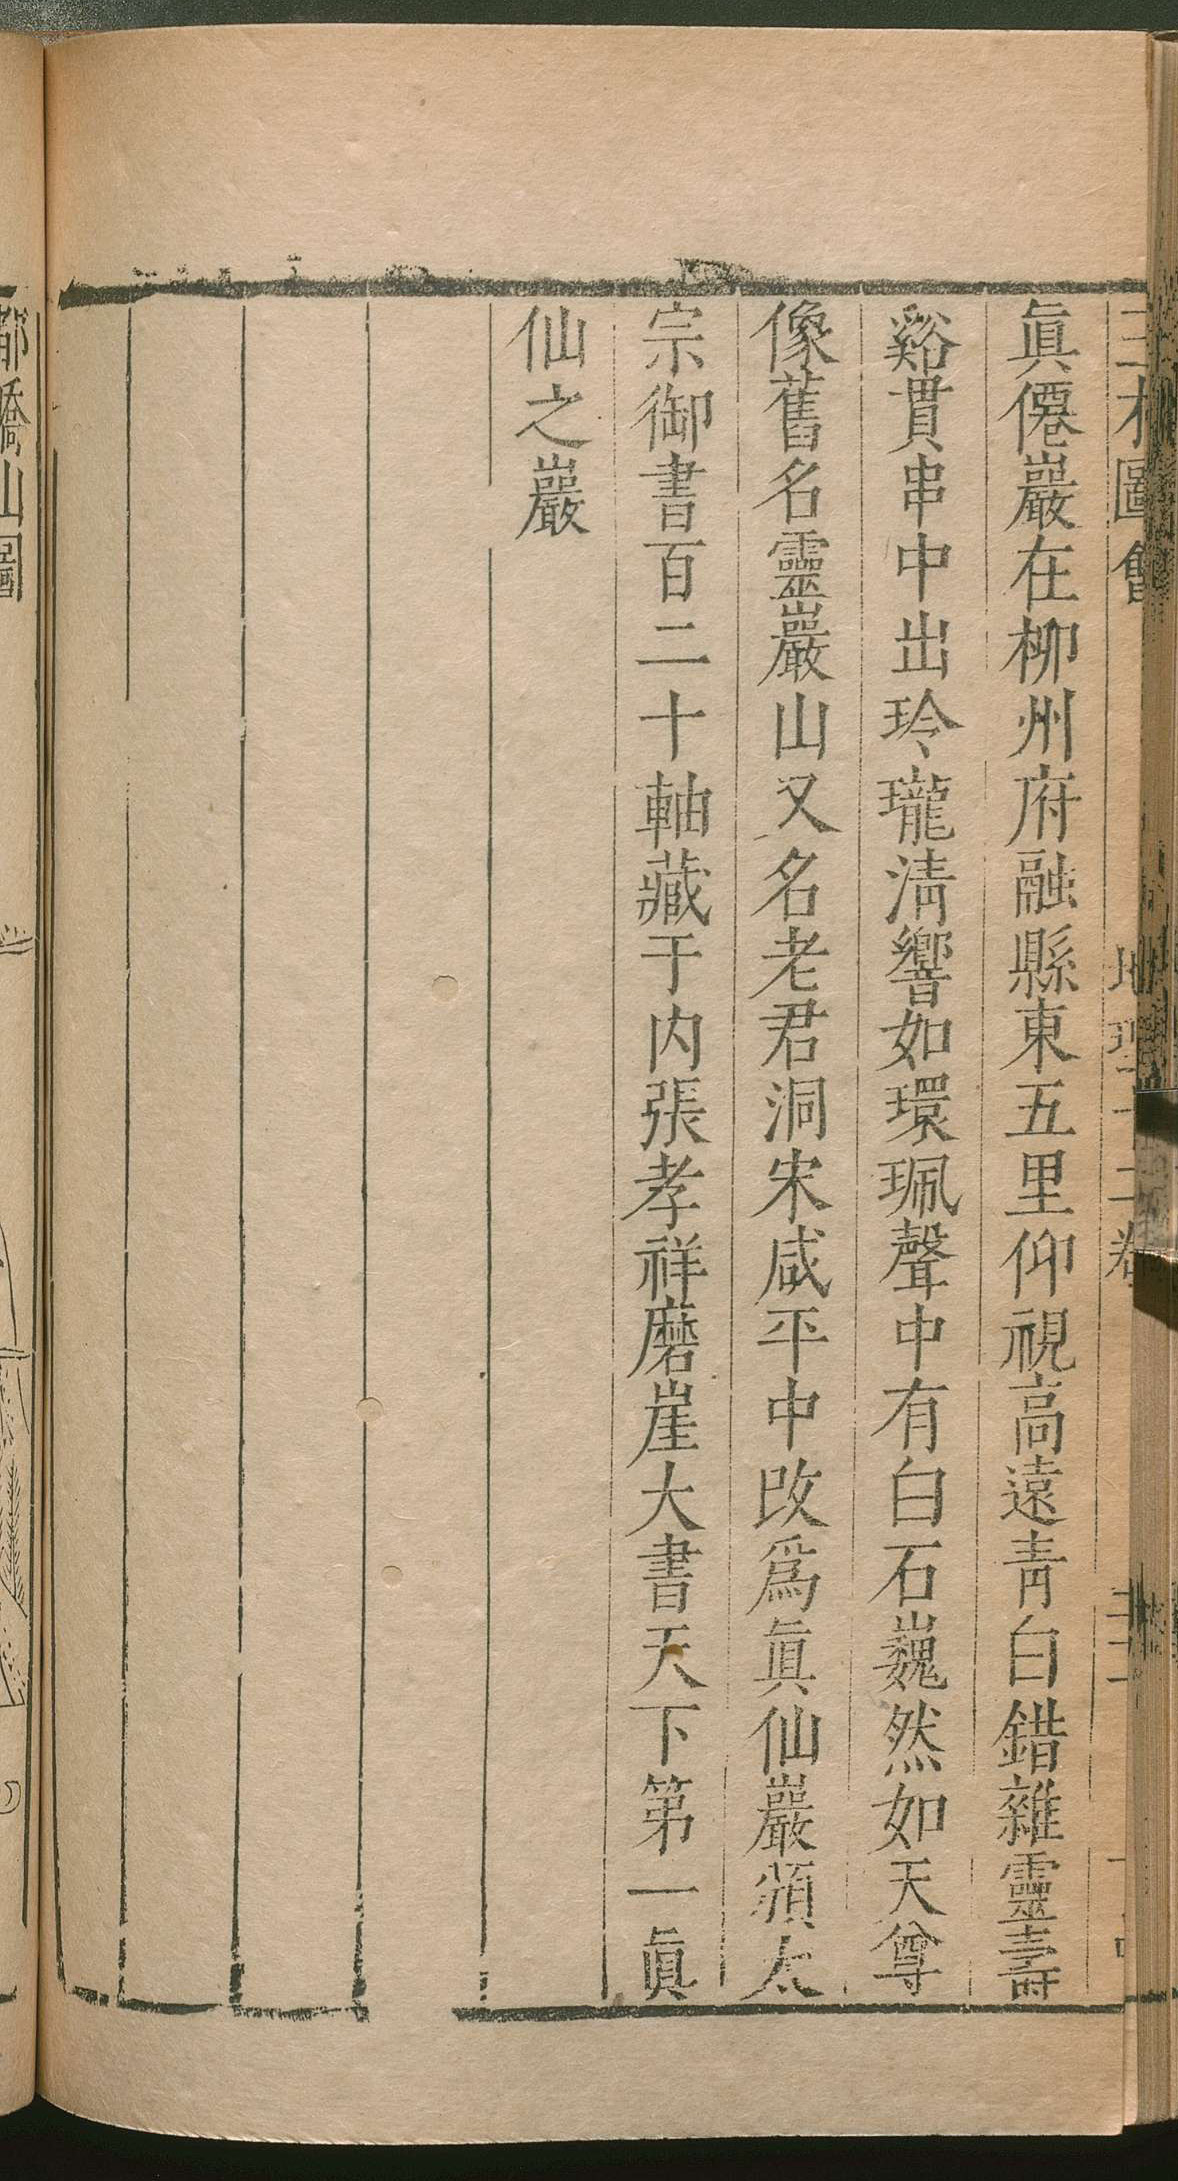 三才圖會 地理十二卷
眞僊巖在柳州府融縣東五里仰視高遠青白錯雜靈壽
谿貫串中出玲瓏清響如環珮聲中有白石巍然如天尊
像舊名靈巖山又名老君洞宋咸平中改爲眞仙巖頒太
宗御書百二十軸藏于內張孝祥磨崖大書天下第一眞
仙之巖
都嶠山圖